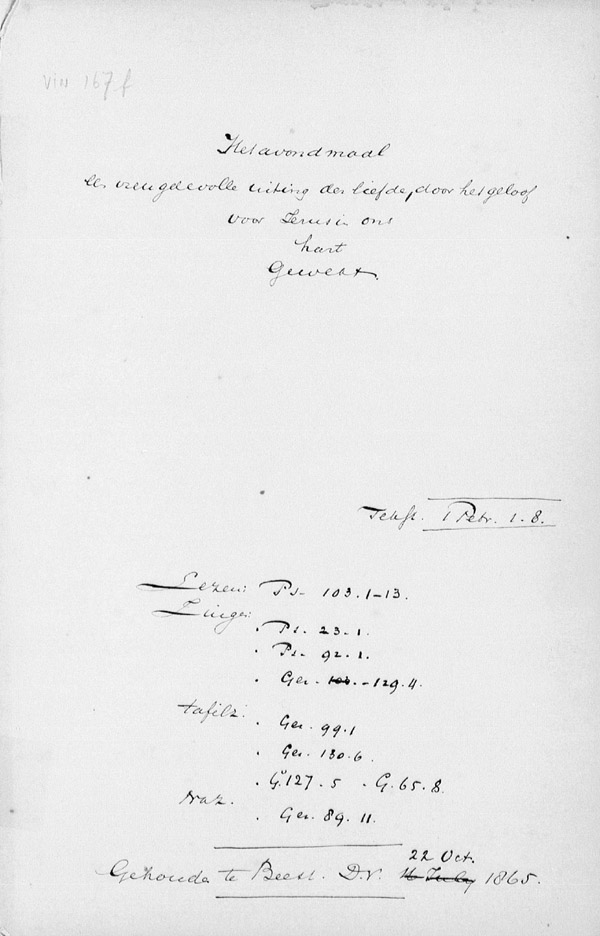 VIII 167 f
Het avondmaal
de vreugdevolle uiting der liefde, door het geloof
voor Jezus in ons
hart
Gewekt.
Tekst. 1 Petr. 1. 8.
Lezen: Ps. 103. 1-13.
Zingen:
. Ps. 23. 1.
. Ps. 92. 1.
. Gez. - 129. 4.
tafelz. . Gez. 99. 1
. Gez. 130. 6.
. G. 127. 5 . G. 65. 8
Naz. . Gez. 89. 11.
22 Oct.
Gehouden te Beest. D.V. 16 July 1865.